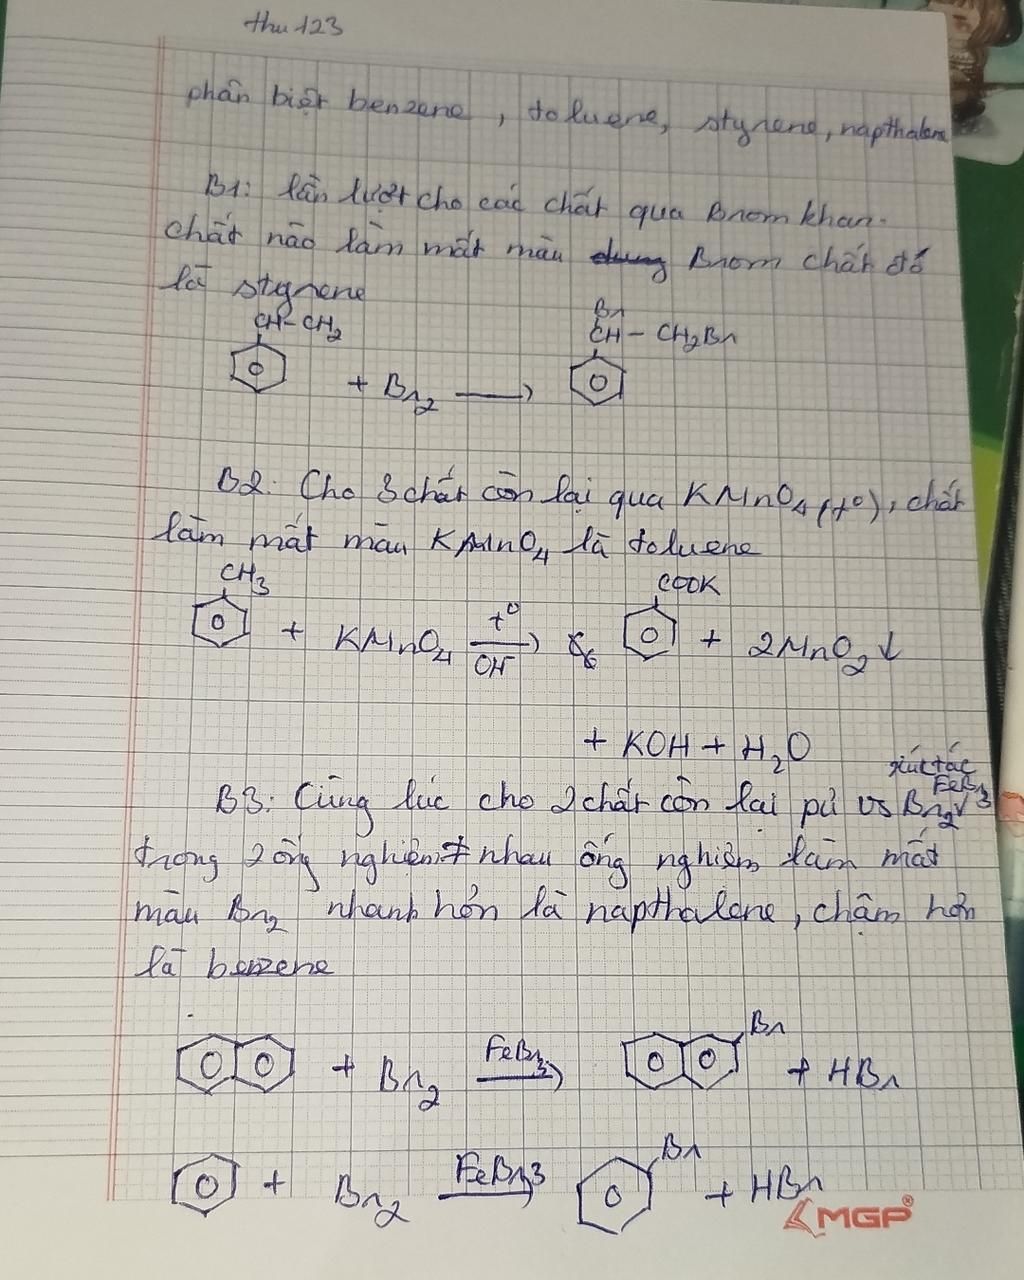 thu 123
phân biệt benzene, toluene, styrene, napthalene
B1: lần lượt cho các chất qua Brom khan.
chất nào làm mất màu dung Brom chất đó
là styrene
CH-CH2
Br
CH - CH2Br
+ Br2 →
B2: Cho 3 chất còn lại qua KMnO4 (t°), chất
làm mất màu KMnO4 là toluene
CH3
COOK
+ KMnO4 t° OH⁻ → + 2MnO2↓
+ KOH + H2O
xúc tác
FeBr3
B3: Cùng lúc cho 2 chất còn lại pư vs Br2
trong 2 ống nghiệm ≠ nhau ống nghiệm làm mất
màu Br2 nhanh hơn là napthalene, chậm hơn
là benzene
+ Br2 FeBr3 → Br + HBr
+ Br2 FeBr3 → Br + HBr
MGP®